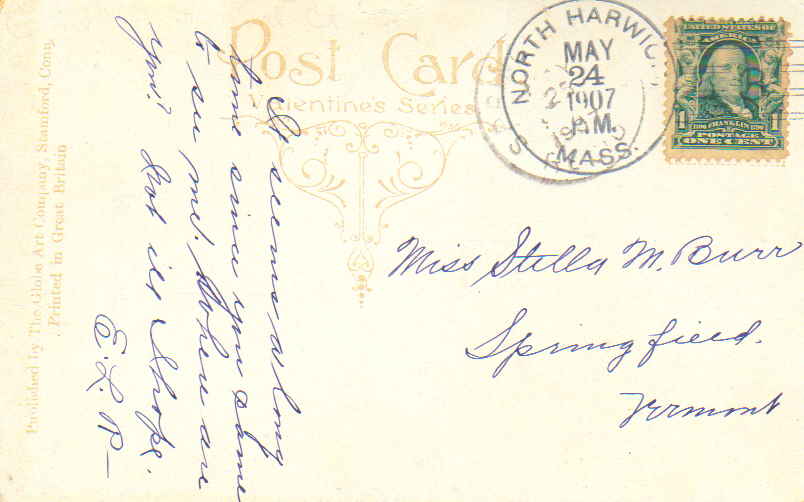 Post Card
Valentine's Series
NORTH HARWIC
MAY
24
1907
MASS.
UNITED STATES OF
AMERICA
1
FRANKLIN
1
POSTAGE
ONE CENT
Miss Stella M. Burr
Springfield.
Vermont
It seems a long
time since you came
to see me. Where are
you?
E. L. P—
Published by The Globe Art Company, Stamford, Conn.
Printed in Great Britain